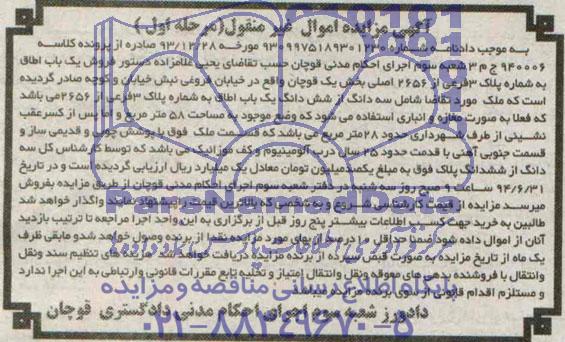 آگهی مزایده اموال غیر منقول(مرحله اول)
به موجب دادنامه شماره ۹۳۰۹۹۷۵۱۸۹۳۰۱۲۳۰ مورخه ۹۳/۱۲/۲۸ صادره از پرونده کلاسه
۹۴۰۰۰۶ ج م ۳ شعبه سوم اجرای احکام مدنی قوچان حسب تقاضای یحیی غلامزاده دستور فروش یک باب اطاق
به شماره پلاک ۳فرعی از ۲۶۵۶ اصلی بخش یک قوچان واقع در خیابان فروغی نبش خیابان و کوچه صادر گردیده
است که ملک مورد تقاضا شامل سه دانگ از شش دانگ یک باب اطاق به شماره پلاک ۳فرعی از ۲۶۵۶می باشد
که فعلا به صورت مغازه و انباری استفاده می شود که وضع موجود به مساحت ۵۸ متر مربع و اما پس از کسر عقب
نشینی از طرف شهرداری حدود ۲۸متر مربع می باشد که قسمت ملک فوق با پوشش چوبی و قدیمی ساز و
قسمت جنوبی آهنی با قدمت حدود ۲۵ سال درب آلومینیوم و کف موزائیک می باشد که توسط کارشناس کل سه
دانگ از ششدانگ پلاک فوق به مبلغ یکصدمیلیون تومان معادل یک میلیارد ریال ارزیابی گردیده است و در تاریخ
۹۴/۶/۳۱ ساعت ۹ صبح روز سه شنبه در دفتر شعبه سوم اجرای احکام مدنی قوچان از طریق مزایده بفروش
میرسد مزایده از قیمت کارشناسی شروع و به شخصی که بالاترین قیمت را پیشنهاد نمایند واگذار خواهد شد
طالبین به خرید جهت کسب اطلاعات بیشتر پنج روز قبل از برگزاری به این واحد اجرا مراجعه تا ترتیب بازدید
آنان از اموال داده شود ضمنا حداقل ۱۰ درصد از بهای مورد مزایده نقدا از برنده وصول خواهد شد و مابقی ظرف
یک ماه از تاریخ مزایده به صورت قبض سپرده از برنده مزایده دریافت خواهد شد هزینه های تنظیم سند ونقل
وانتقال با فروشنده بدهی های معوقه ونقل وانتقال امتیاز و تخلیه تابع مقررات قانونی وارتباطی به این اجرا ندارد
و مستلزم اقدام قانونی از سوی برنده مزایده میباشد
دادورز شعبه سوم اجرای احکام مدنی دادگستری قوچان
پایگاه اطلاع رسانی مناقصه و مزایده
۰۲۱-۸۸۳۴۹۶۷۰-۵